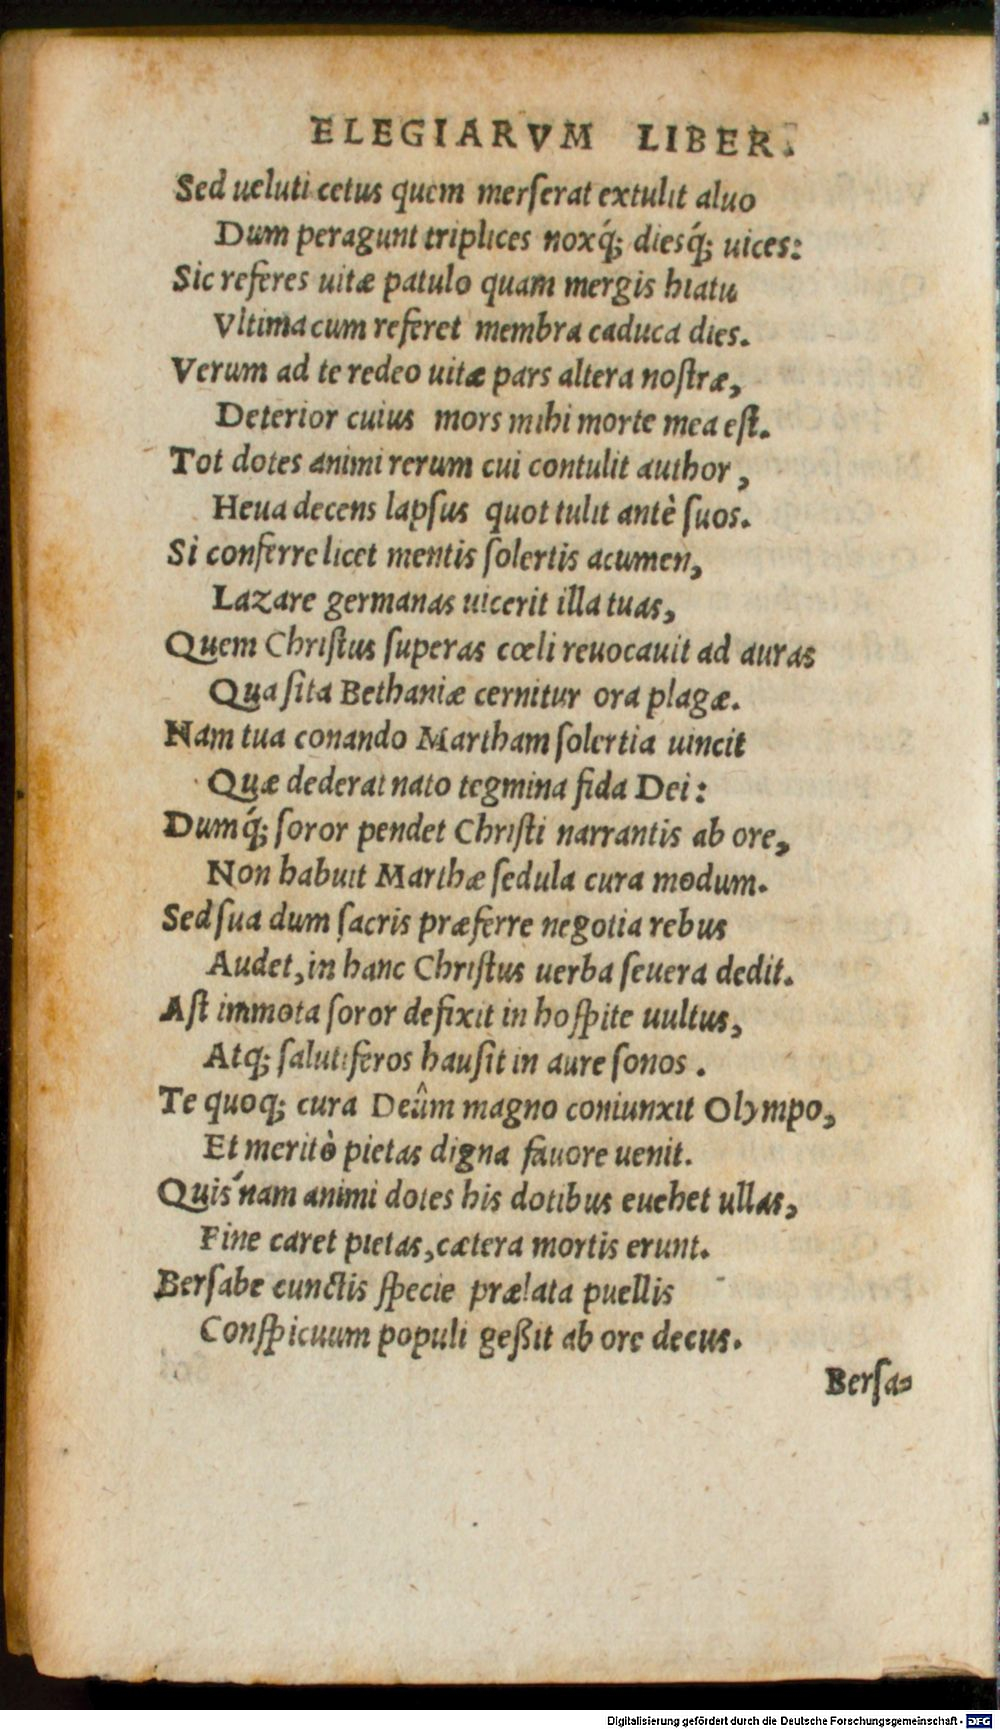 ELEGIARVM LIBER.
Sed ueluti cetus quem merſerat extulit aluo
Dum peragunt triplices noxq́; diesq́; uices:
Sic referes uitæ patulo quam mergis hiatu
Vltima cum referet membra caduca dies.
Verum ad te redeo uitæ pars altera noſtræ,
Deterior cuius mors mihi morte mea eſt.
Tot dotes animi rerum cui contulit author,
Heua decens lapſus quot tulit antè ſuos.
Si conferre licet mentis ſolertis acumen,
Lazare germanas uicerit illa tuas,
Quem Chriſtus ſuperas cœli reuocauit ad auras
Qua ſita Bethaniæ cernitur ora plagæ.
Nam tua conando Martham ſolertia uincit
Quæ dederat nato tegmina fida Dei:
Dumq́; ſoror pendet Chriſti narrantis ab ore,
Non habuit Marthæ ſedula cura modum.
Sed ſua dum ſacris præferre negotia rebus
Audet, in hanc Chriſtus uerba ſeuera dedit.
Aſt immota ſoror defixit in hoſpite uultus,
Atq; ſalutiferos hauſit in aure ſonos.
Te quoq; cura Deûm magno coniunxit Olympo,
Et meritò pietas digna fauore uenit.
Quis'nam animi dotes his dotibus euehet ullas,
Fine caret pietas, cætera mortis erunt.
Berſabe cunctis ſpecie prælata puellis
Conſpicuum populi geßit ab ore decus.
Berſa-
Digitalisierung gefördert durch die Deutsche Forschungsgemeinschaft - DFG